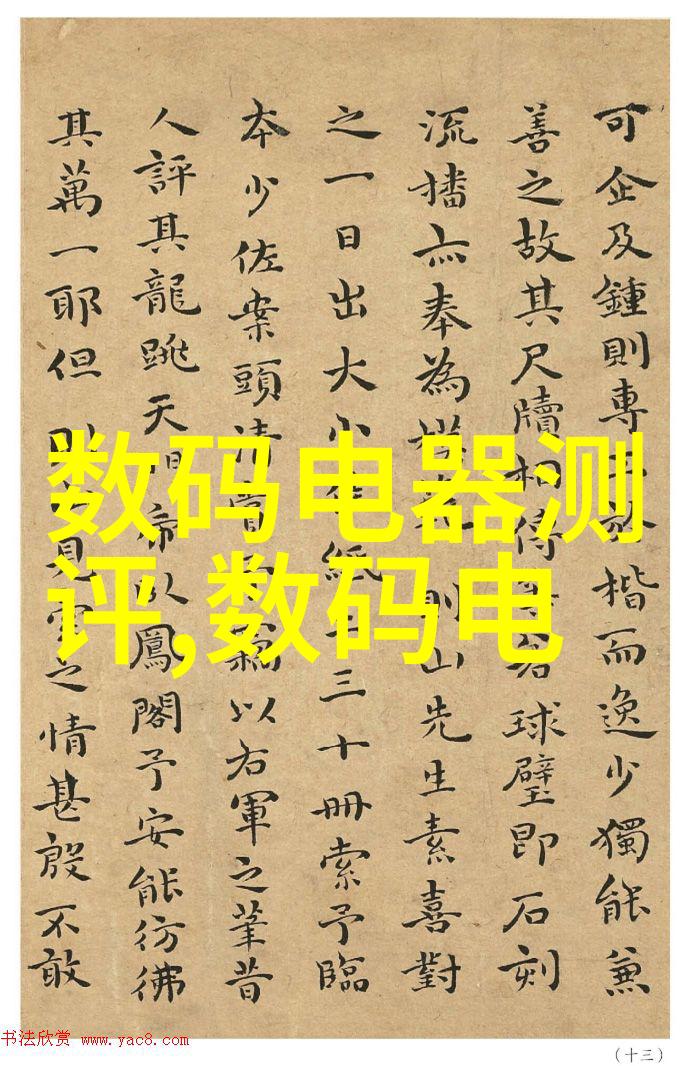 可企及鍾則專工於楷而逸少獨能兼
善之故其尺牘相傳
名球璧即石刻
流播亦奉為
則山先生素喜對
之一日出大小
紙
三十冊索予臨
本少佐案頭清賞
以右軍之筆昔
人評其龍跳天
帝以鳳閣予安能彷彿
其萬一耶但
見
之情甚殷不敢
数码电器测
评,数码电
书法欣赏 www.yac8.com
(十三)